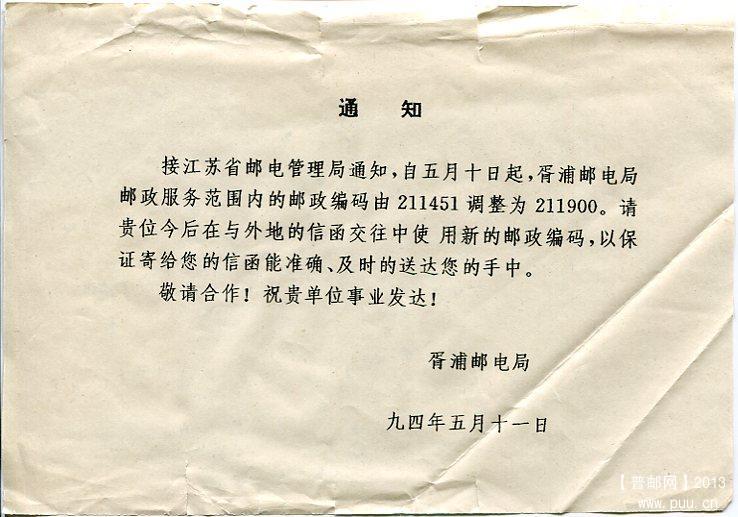 通 知
接江苏省邮电管理局通知，自五月十日起，胥浦邮电局
邮政服务范围内的邮政编码由 211451 调整为 211900。请
贵位今后在与外地的信函交往中使 用新的邮政编码，以保
证寄给您的信函能准确、及时的送达您的手中。
敬请合作！祝贵单位事业发达！
胥浦邮电局
九四年五月十一日
【普邮网】2013
www.puu.cn